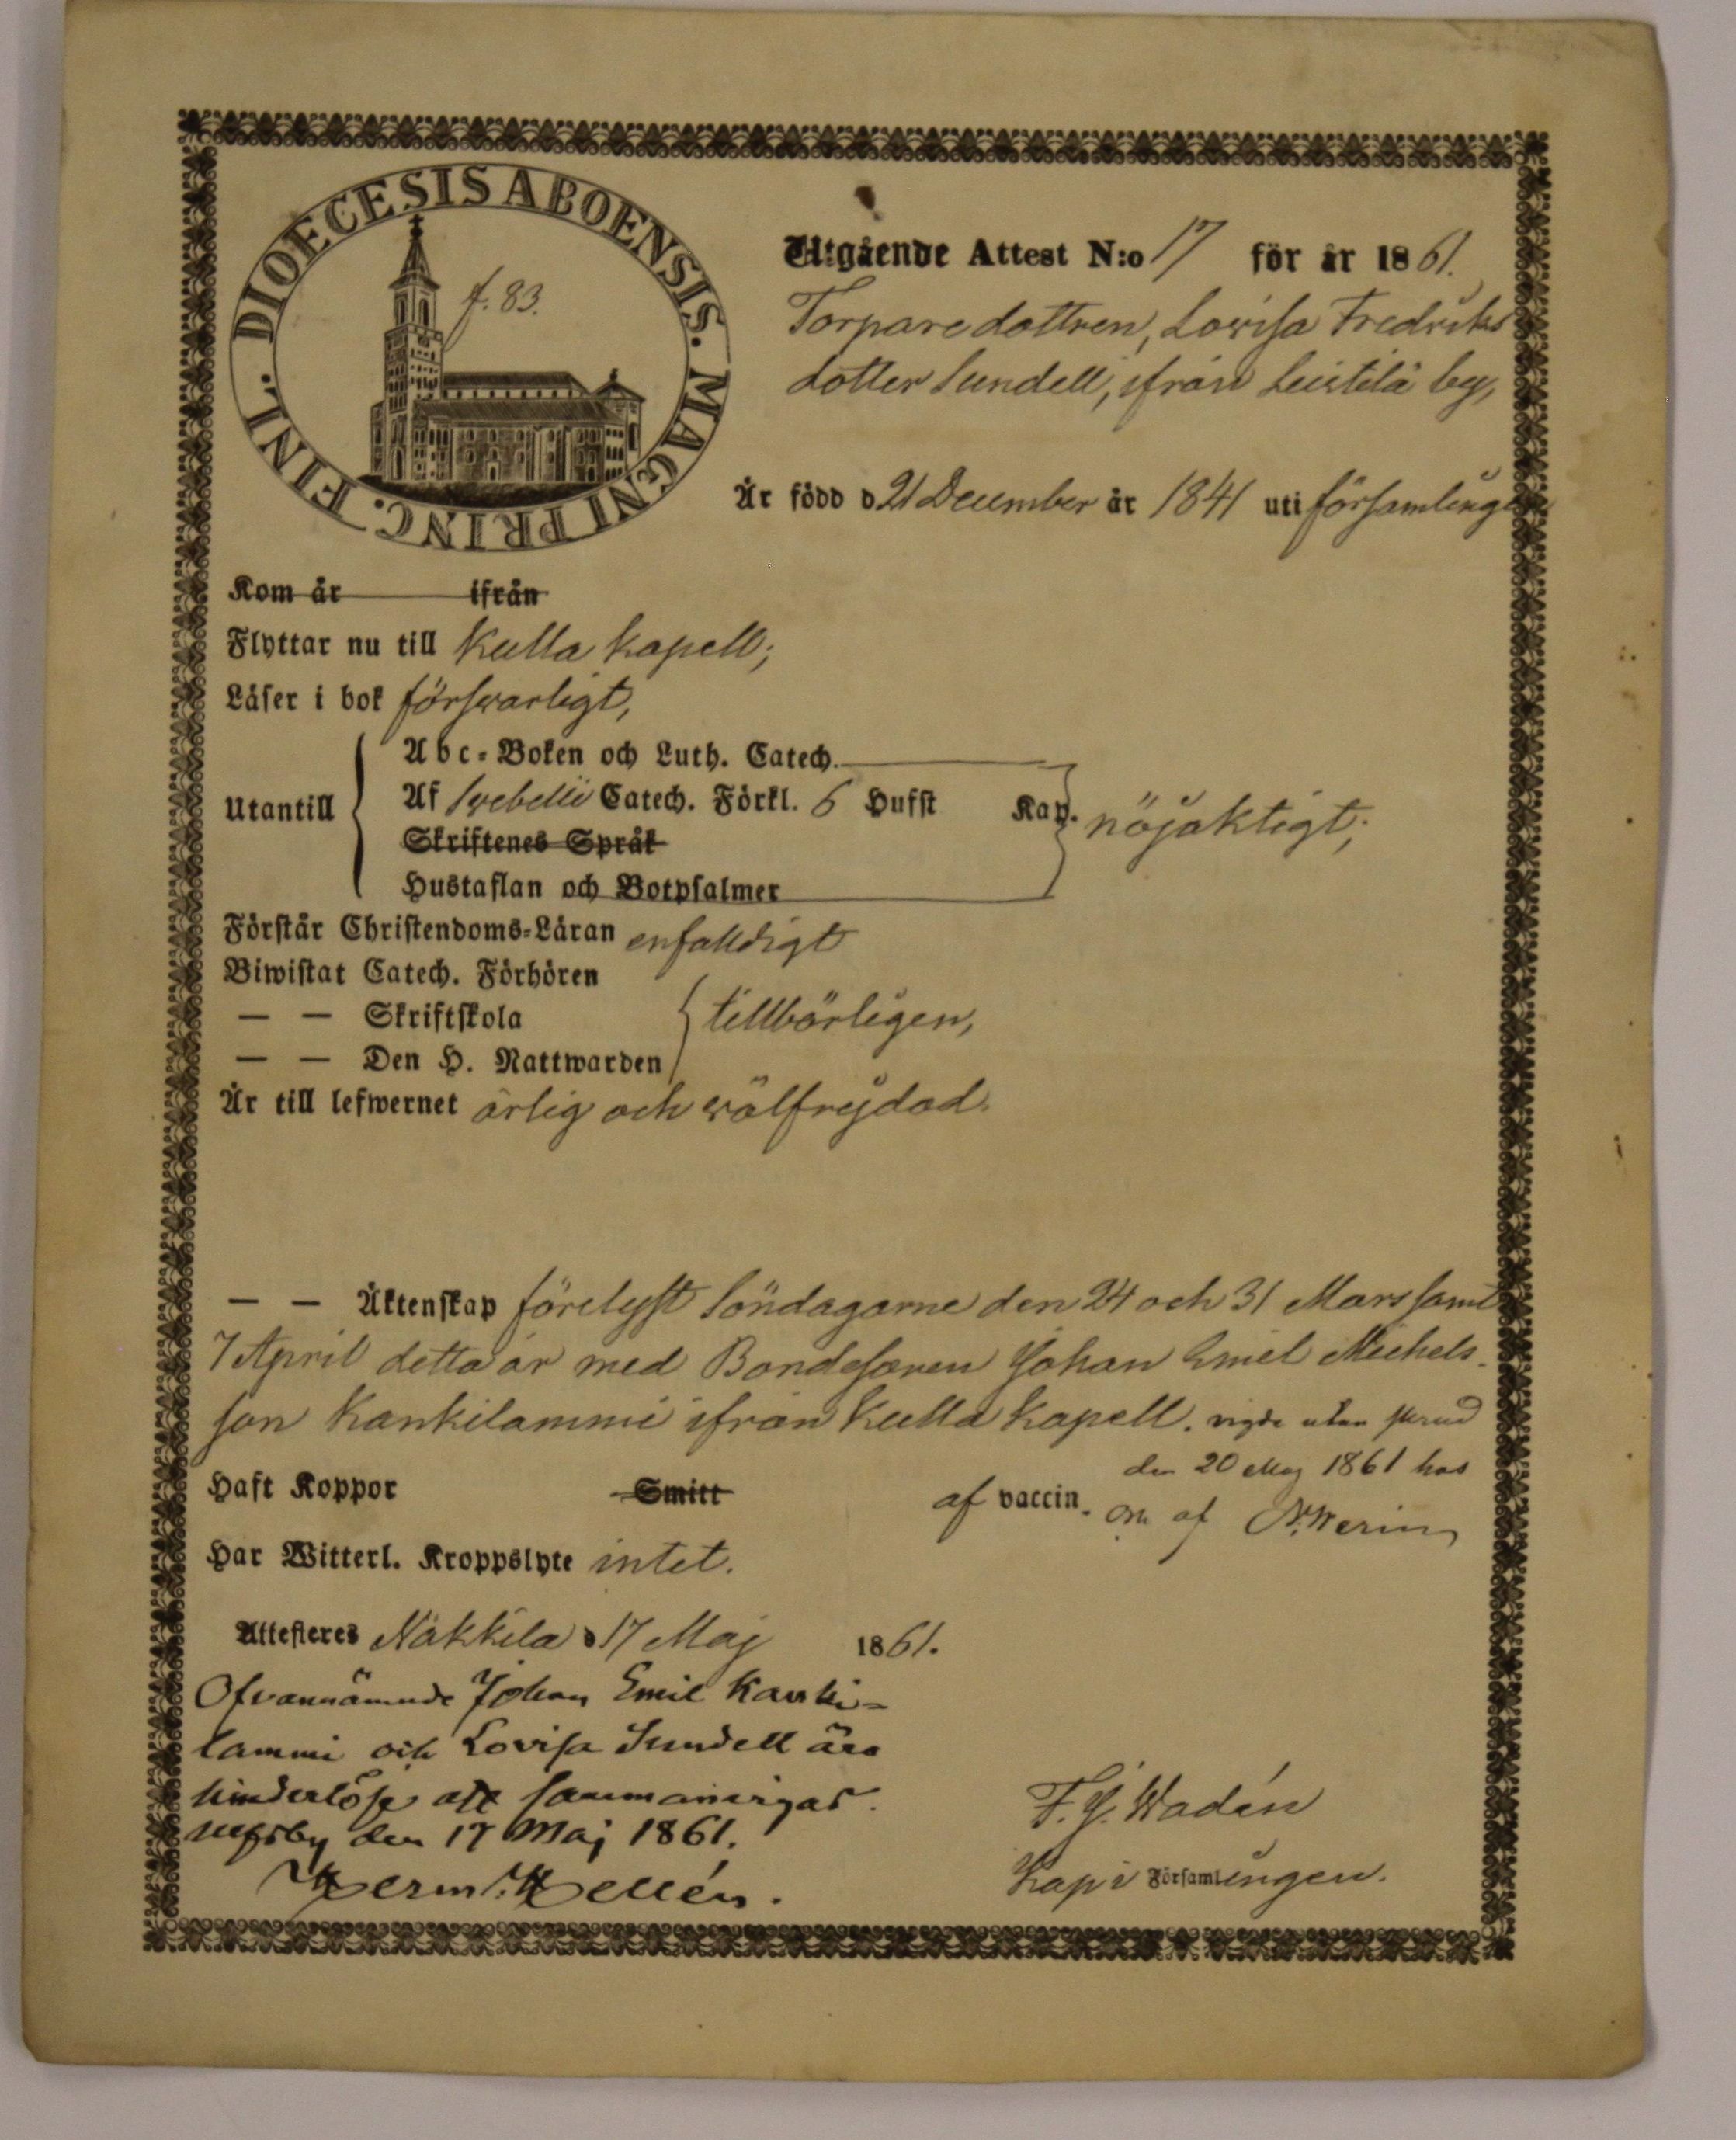 DIOECESIS ABOENSIS. MAGNI PRINC. FINL.
f. 83.
Utgående Attest N:o 17 för år 1861.
Torparedottren, Lovisa Fredriks
dotter Sundell, ifrån Leistilä by,
Är född d. 21 December år 1841 uti församlingen
Kom år ifrån
Flyttar nu till Kulla Kapell;
Läser i bok försvarligt,
Utantill
Abc-Boken och Luth. Catech.
Af Svebelii Catech. Förkl. 6 Hufst Kap. nöjaktigt;
Skriftenes Språk
Hustaflan och Botpsalmer
Förstår Christendoms-Läran enfaldigt
Biwistat Catech. Förhören
— — Skriftskola tillbörligen,
— — Den H. Nattwarden
Är till lefwernet ärlig och välfrejdad.
— — Äktenskap förelyst Söndagarne den 24 och 31 Mars samt
7 April detta år med Bondesonen Johan Emil Michels-
son Kankilammi ifrån Kulla Kapell. vigde utan
den 20 Maj 1861 hos
Haft Koppor Smitt af vaccin. af
Har Witterl. Kroppslyte intet.
Attesteres Nakkila d 17 Maj 1861.
Ofvannämnde Johan Emil Kanki-
lammi och Lovisa Sundell äro
hinderlöse att sammanvigas.
den 17 Maj 1861.
Herm. Hellén.
F. J. Wadén
Kap i Församlingen.